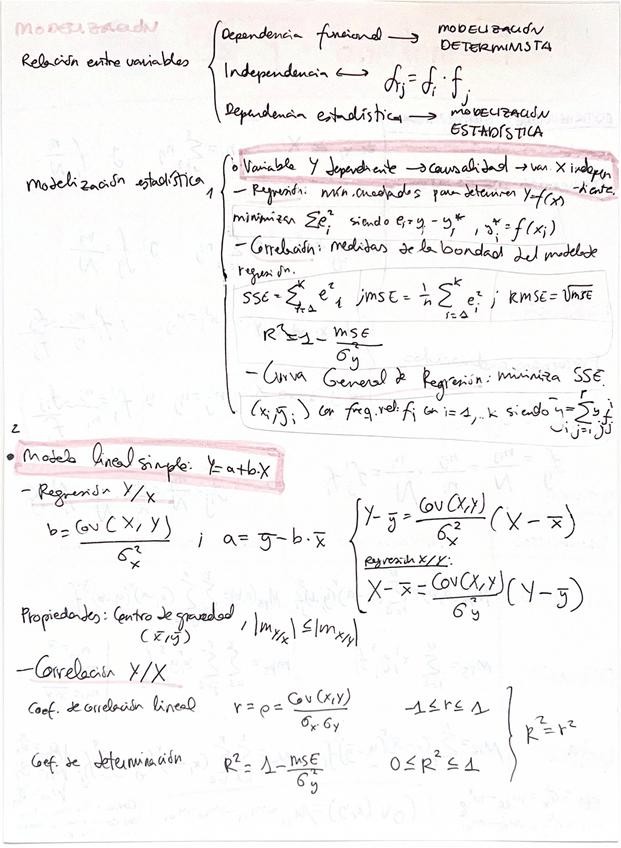 MODELIZACIÓN
Relación entre variables
Dependencia funcional → MODELIZACIÓN DETERMINISTA
Independencia ↔ fij = fi · fj
Dependencia estadística → MODELIZACIÓN ESTADÍSTICA
Modelización estadística 1
o Variable Y dependiente → causalidad → var. X indepen
-diente.
- Regresión: mín. cuadrados para determinar Y=f(x)
minimizan Σe²i siendo ei = yi - yi*, yi* = f(xi)
- Correlación: medidas de la bondad del modelo de
regresión.
SSE = Σ(i=1..k) e²i ; MSE = 1/n Σ(i=1..k) e²i ; RMSE = √MSE
R² = 1 - MSE/σ²y
- Curva General de Regresión: minimiza SSE.
(xi, ȳi) con freq. rel. fi con i=1,..k siendo ȳi = Σ(j=i..r) yj fj^i
2
• Modelo lineal simple: Y = a+b·X
- Regresión Y/X
b = Cov(X,Y)/σ²x ; a = ȳ - b·x̄
Y - ȳ = Cov(X,Y)/σ²x (X - x̄)
Regresión X/Y:
X - x̄ = Cov(X,Y)/σ²y (Y - ȳ)
Propiedades: Centro de gravedad, |mY/X| ≤ |mX/Y|
(x̄, ȳ)
- Correlación Y/X
Coef. de correlación lineal r = ρ = Cov(X,Y)/σx·σy -1 ≤ r ≤ 1
Coef. de determinación R² = 1 - MSE/σ²y 0 ≤ R² ≤ 1
R² = r²